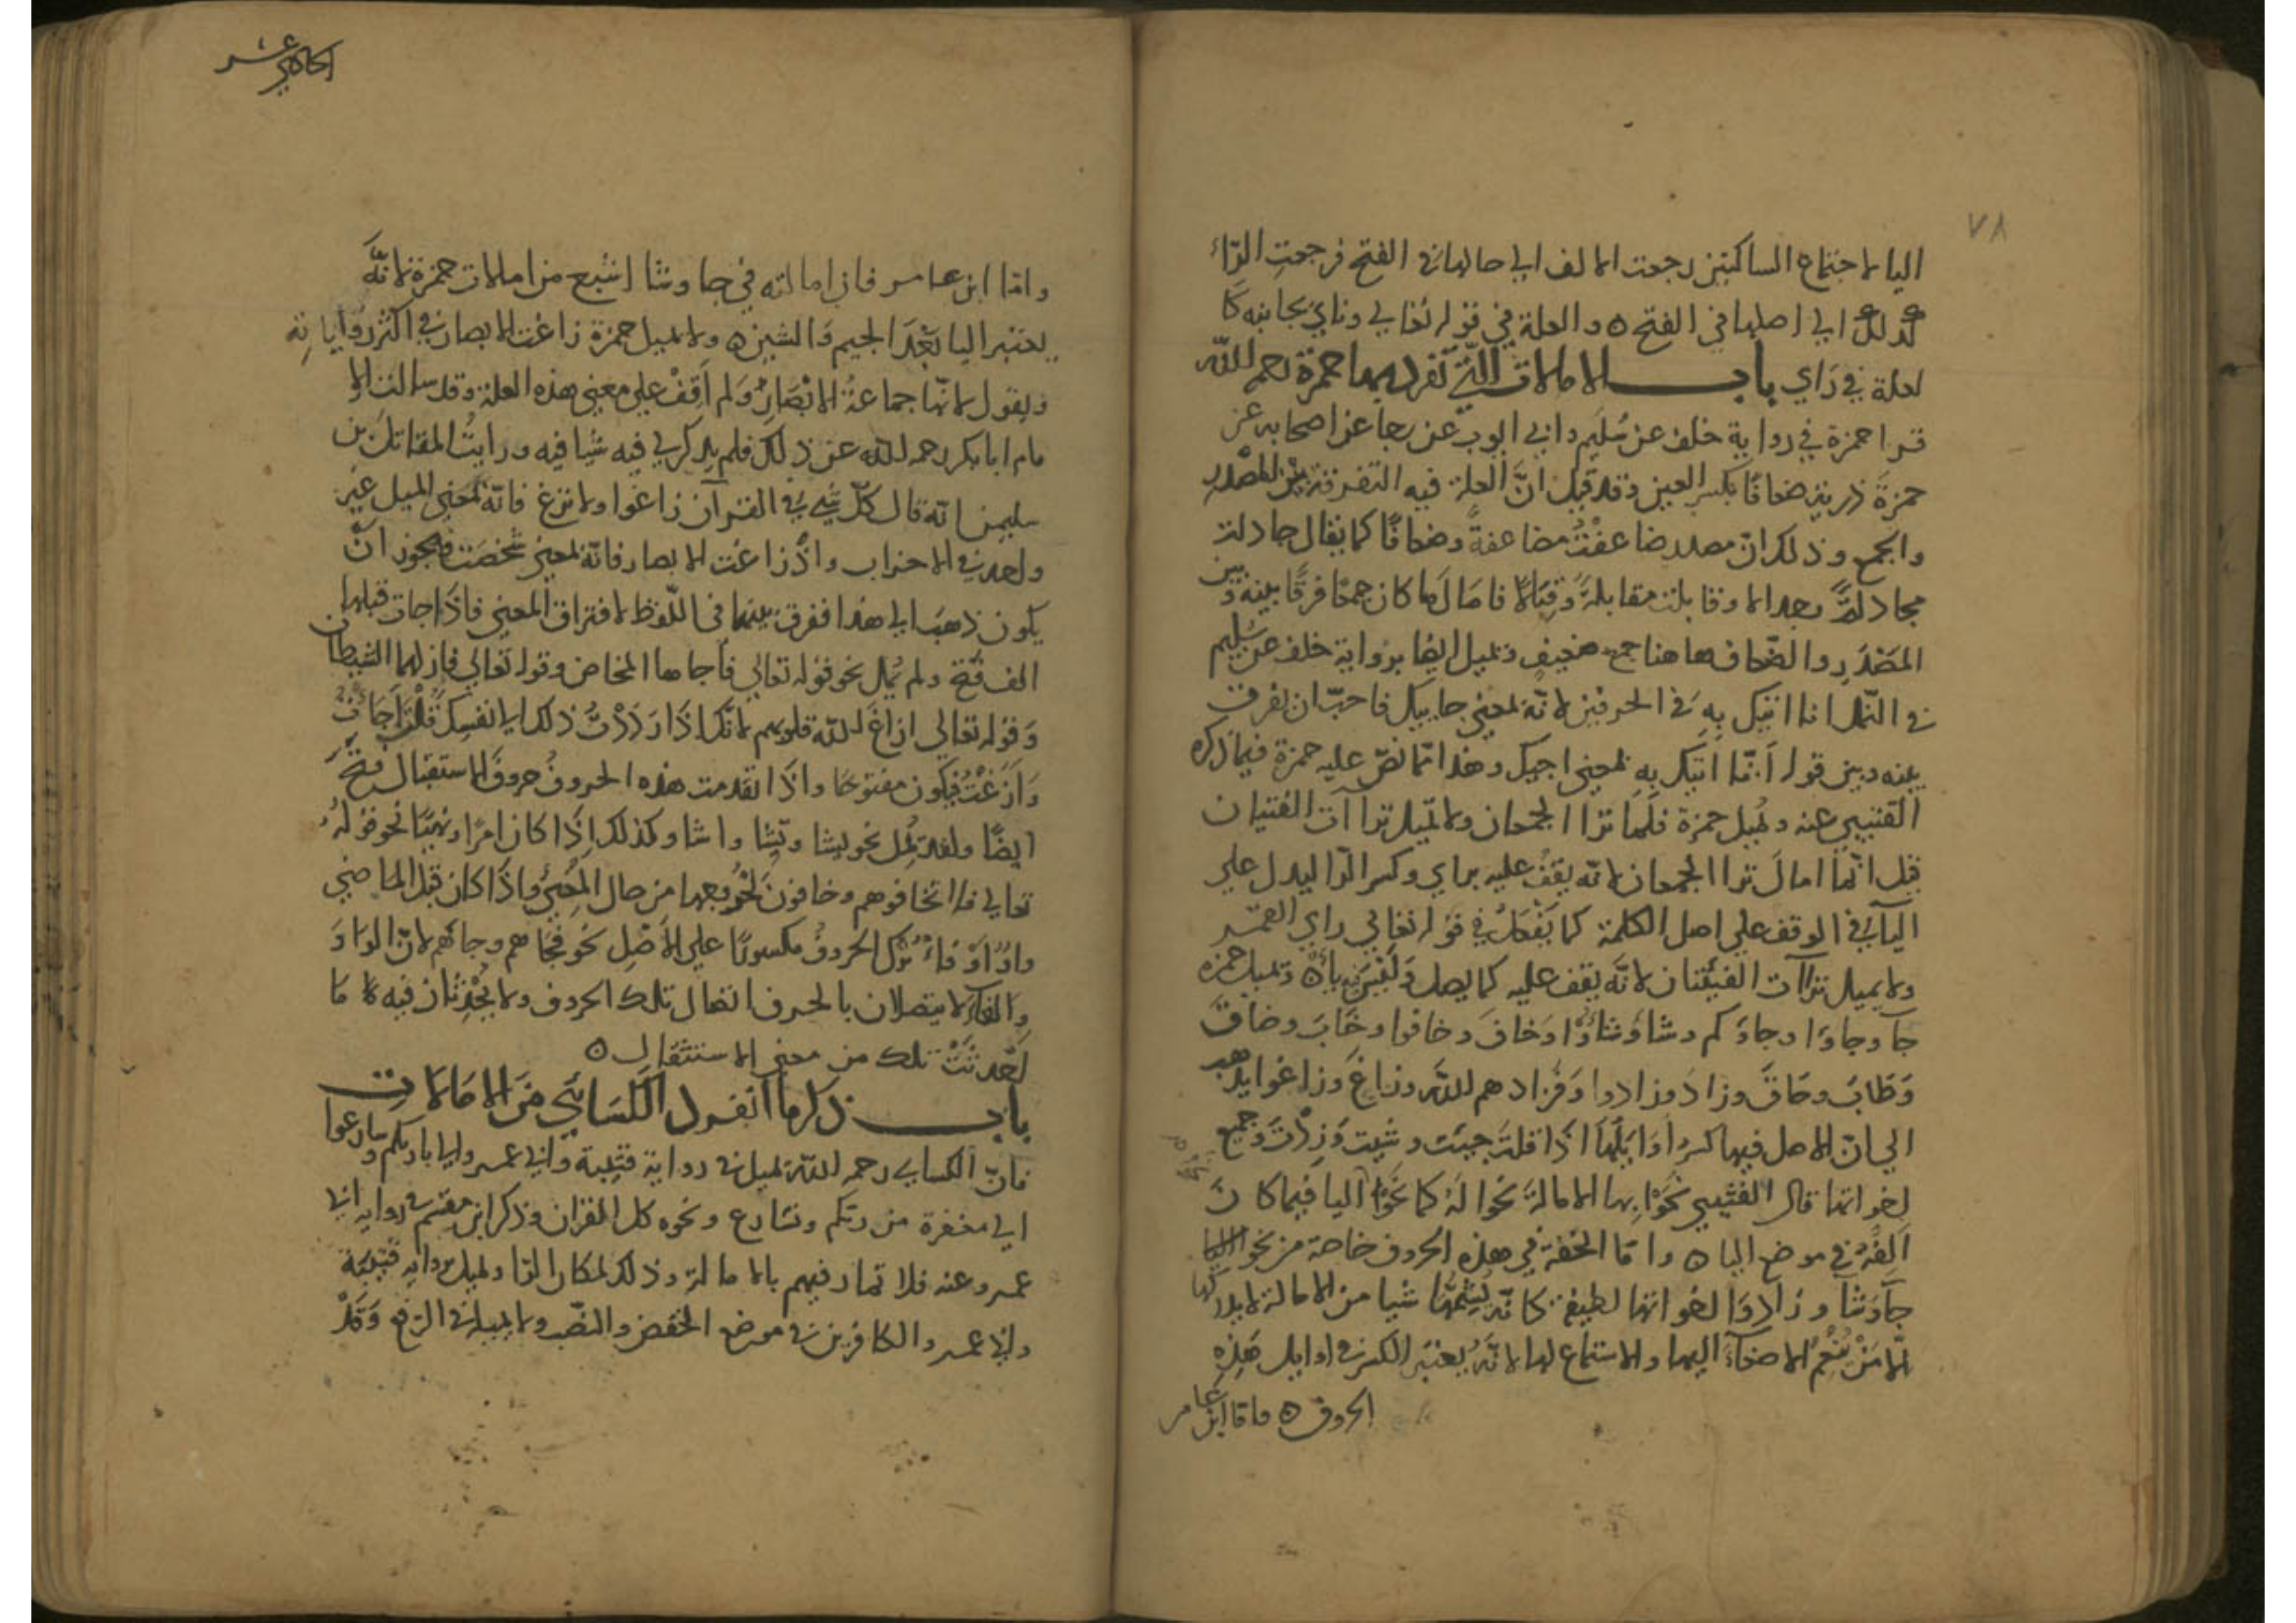 ٧٨
اليا لاجتماع الساكنين رجعت الالف الى حالها فى الفتح فرجعت الرّاء
كذلك الى اصلها فى الفتح ه والعلة في قوله تعالى ونأى بجانبه كا
لعلة في رَاي باب الامالات التي تفرد بها حمزة رحمه الله
قرا حمزة في رواية خلف عن سُليم وابي ايوب عن رجا عن اصحابه عن
حمزة ذرية ضعافًا بكسر العين وقد قيل انَّ العلة فيه التفرقة بين المصْدر
والجمع وذلك انّ مصدر ضاعفْتُ مضاعفةً وضعافًا كما يقال جادلته
مجادلةً وجدالا وقابلت مقابلةً وَقِبَالًا فامَال لما كان جمعًا فرقًا بينه وبين
المصْدَرِ والضّعاف هاهنا جمع ضعيفٍ وتميل ايضا برواية خلف عن سُليم
في النّمل انا اتيك بِهِ في الحرفين لانّه بمعنى جاييك فاحبّ ان يفرق
بينه وبين قوله اَنَا اتيك بِهِ بمعنى اجيك وهذا ممّا نصّ عليه حمزة فيما ذكره
القتيبي عنه وتميل حمزة فلمّا ترا الجمعان ولا تميل تراآت الفئتان
قيل انّما امالَ ترا الجمعان لانّه يقفُ عليه براي وكسر الرّا ليدل على
اليآ في الوقف علي اصل الكلمة كما يَفْعَلُ في قوله تعالى راي القمر
ولا يميل تراآت الفيئتان لانّه يقف عليه كما يصل وَلَيْسَ فيه يآ ه وتميل حمزه
جآ وجاوا وجاؤكم وشا وَشاؤا وَخافَ وخافوا وخابَ وضاقَ
وَطَابَ وحَاقَ وزادَ وزادوا وَفزادهم اللّه وزاغَ وزاغوا يذهب
الى انّ الاصل فيها كسرُ اوَايلها اذَا قلتَ جيتَ وشيت وَزِدْتَ وَجميع
اخواتها قال القتيبي نَحَوْا بها الامالةَ نحوا لهُ كما نحَوْا اليا فيما كانَ
اَلِفُهُ في موضع اليا ه وامّا الخفة في هذه الحروف خاصة من نحو
جآوَشآ وزادوَا اخواتها لطيفة كانّه يُشِمُّها شيا من الامالة لا يدركها
الّا مَنْ يُنْعِمُ الاصغآ اليها والاستماع لها لانّه يعتبر الكسر في اوايل هَذِهِ
الحروف ه وامّا ابن عامر
الحادي عشر
وامّا ابن عامر فان امالته في جا وشا اشبع من امالات حمزة لانّهَ
يعتبر اليا بَعْدَ الجيم وَالشين ه ولا يميل حمزة زاغت الابصار في اكثر رواياته
ويقول لانّها جماعةُ الابْصَارِ وَلم اَقِفْ على معنى هذه العلة وقد سالت الا
مام ابابكر رحمه اللّه عن ذلك فلم يذكر لي فيه شيا فيه ورايتُ المقاتل بن
سليمن انّه قال كلّ شي في القرآن زاغوا ولا تزغ فانّه بمعنى الميل غير
واحد في الاحزاب واذْ زاغت الابصار فانّه بمعنى شخصَت فيجوز انَّ
يكون ذهَبَ الى هذا ففرق بينهما في اللّفظ لافتراق المعنى فاذَا جات قبلها
الف فتح ولم يُمل نحو قوله تعالى فأجاها المخاض وقوله تعالى فازلهما الشيطان
وَقوله تعالى ازاغَ اللّه قلوبهم لانّك اذَا رَدَدْتَّ ذلك الى نفسك قُلْتَ اَجَاتُ
وَازَغْتُ فيكون مفتوحًا واذَا تقدمت هذه الحروفُ حروفَ الاستقبال فتحَ
ايضًا ولم تُمِل نحو يشا وتشا واشا وكذلك اِذَا كان امرًا ونهيًا نحو قولهُ
تعالى فلا تخافوهم وخافون لخروجها من حال المجيِ واذَا كان قبل الماضي
واوٌ اوْ فاءٌ تُرِك الحروفُ مكسورًا على الاَصْلِ نحو فجاهم وجاهُم لانّ الواوَ
والفآ لا يتصلان بالحرف اتصال تلك الحروف ولا يُحْدِثان فيه مَا
اَحْدثَتْ تلك من معنى الاستثقال ه
باب ذكر ما انفرد الكسائي من الامالات
فانّ الكساي رحمه اللّه تميل في رواية قتيبة وابي عمر والى باريكم وسارعوا
الى مغفرة من ربكم ونسارع ونحوه كل القران وذكر ابن مقسم في رواية ابي
عمر وعنه فلا تمار فيهم بالامالة وذلك لمكان الرّا وتميل برواية قتيبة
وابي عمر والكافرين في موضع الخفض والنصب ولا يميله في الرّفع وَقَدْ